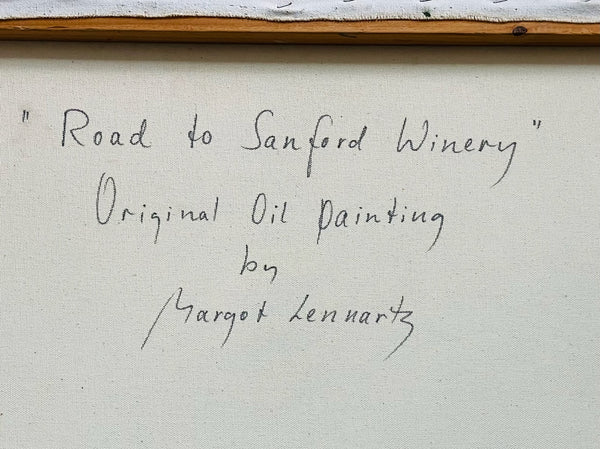 "Road to Sanford Winery"
Original Oil Painting
by
Margot Lennartz